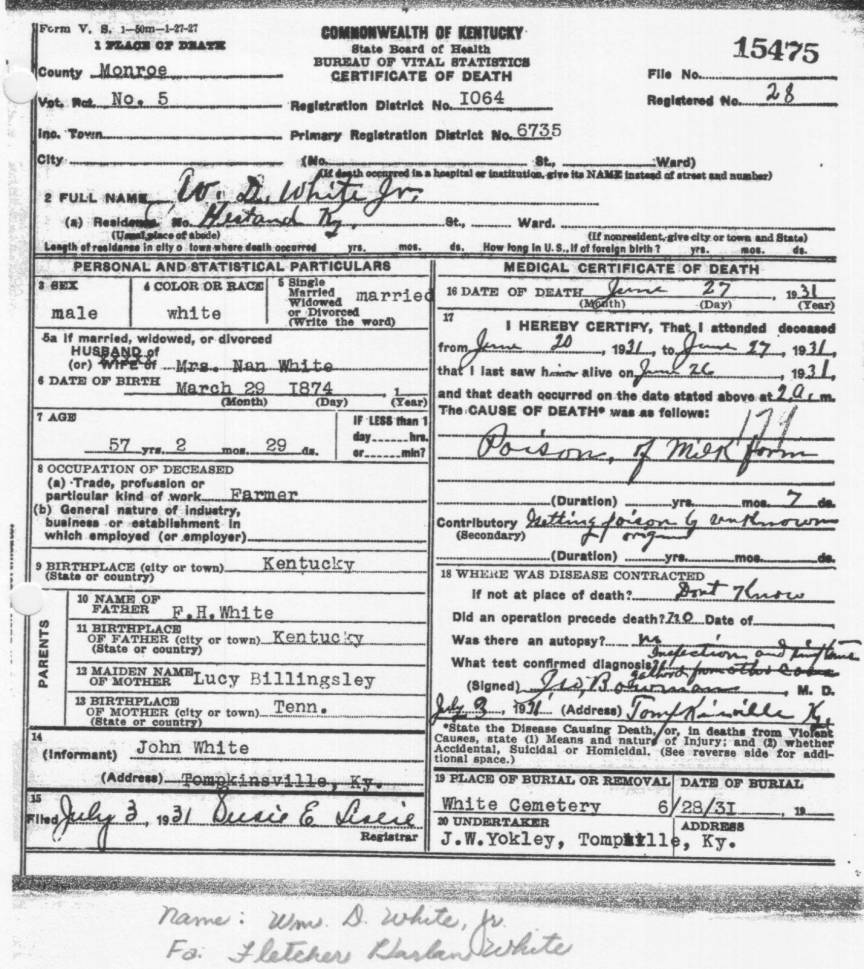 Form V. S. 1-50m-1-27-27
1 PLACE OF DEATH
County Monroe
Vot. Pct. No. 5
Inc. Town
City
COMMONWEALTH OF KENTUCKY
State Board of Health
BUREAU OF VITAL STATISTICS
CERTIFICATE OF DEATH
Registration District No. 1064
Primary Registration District No. 6735
15475
File No.
Registered No. 28
(No. St., Ward)
(If death occurred in a hospital or institution, give its NAME instead of street and number)
2 FULL NAME W. D. White Jr.
(a) Residence No. Hestand Ky. St., Ward.
(Usual place of abode) (If nonresident, give city or town and State)
Length of residence in city o town where death occurred yrs. mos. ds. How long in U.S., if of foreign birth? yrs. mos. ds.
PERSONAL AND STATISTICAL PARTICULARS
3 SEX
male
4 COLOR OR RACE
white
5 Single
Married
Widowed
or Divorced
(Write the word)
married
5a If married, widowed, or divorced
HUSBAND of
(or) WIFE of Mrs. Nan White
6 DATE OF BIRTH March 29 1874, 1
(Month) (Day) (Year)
7 AGE
57 yrs. 2 mos. 29 ds.
IF LESS than 1
day hrs.
or min?
8 OCCUPATION OF DECEASED
(a) Trade, profession or
particular kind of work Farmer
(b) General nature of industry,
business or establishment in
which employed (or employer)
9 BIRTHPLACE (city or town) Kentucky
(State or country)
PARENTS
10 NAME OF
FATHER F.H.White
11 BIRTHPLACE
OF FATHER (city or town) Kentucky
(State or country)
12 MAIDEN NAME
OF MOTHER Lucy Billingsley
13 BIRTHPLACE
OF MOTHER (city or town) Tenn.
(State or country)
14
(Informant) John White
(Address) Tompkinsville, Ky.
15
Filed July 3, 1931 Susie E Leslie
Registrar
MEDICAL CERTIFICATE OF DEATH
16 DATE OF DEATH June 27, 1931
(Month) (Day) (Year)
17
I HEREBY CERTIFY, That I attended deceased
from June 20, 1931, to June 27, 1931,
that I last saw him alive on June 26, 1931,
and that death occurred on the date stated above at 2 a. m.
The CAUSE OF DEATH* was as follows:
179
Poison, of Milk form
(Duration) yrs. mos. 7 ds.
Contributory Getting poison of unknown
(Secondary) origin
(Duration) yrs. mos. ds.
18 WHERE WAS DISEASE CONTRACTED
If not at place of death? Dont Know
Did an operation precede death? no Date of
Was there an autopsy? no
What test confirmed diagnosis? Inspection and
gathered from other
(Signed) M. D.
July 3, 1931 (Address) Tompkinsville Ky.
*State the Disease Causing Death, or, in deaths from Violent
Causes, state (1) Means and nature of Injury; and (2) whether
Accidental, Suicidal or Homicidal. (See reverse side for addi-
tional space.)
19 PLACE OF BURIAL OR REMOVAL DATE OF BURIAL
White Cemetery 6/28/31 19
20 UNDERTAKER ADDRESS
J.W.Yokley, Ky.
Name: Wm. D. White, Jr.
Fa. Fletcher Harlan White